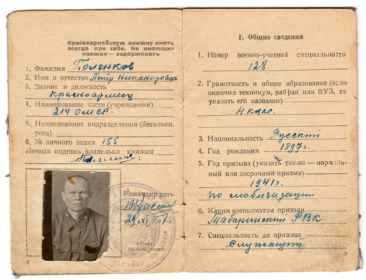 Красноармейскую книжку иметь
всегда при себе. Не имеющих
книжек — задерживать
1. Фамилия Поленков
2. Имя и отчество Петр Никанорович
3. Звание и должность
красноармеец
4. Наименование части (учреждения)
5. Наименование подразделения (батальон,
рота)
6. № личного знака 155
Личная подпись владельца книжки
Командир роты
I. Общие сведения
1. Номер военно-учетной специальности
128
2. Грамотность и общее образование (если
окончил техникум, рабфак или ВУЗ, то
указать его название)
4 клас.
3. Национальность Русский
4. Год рождения 1897 г.
5. Год призыва (указать также — нормаль-
ный или досрочный призыв)
1941 г.
по мобилизации
6. Каким военкоматом призван
Табаринский РВК
7. Специальность до призыва
Служащий